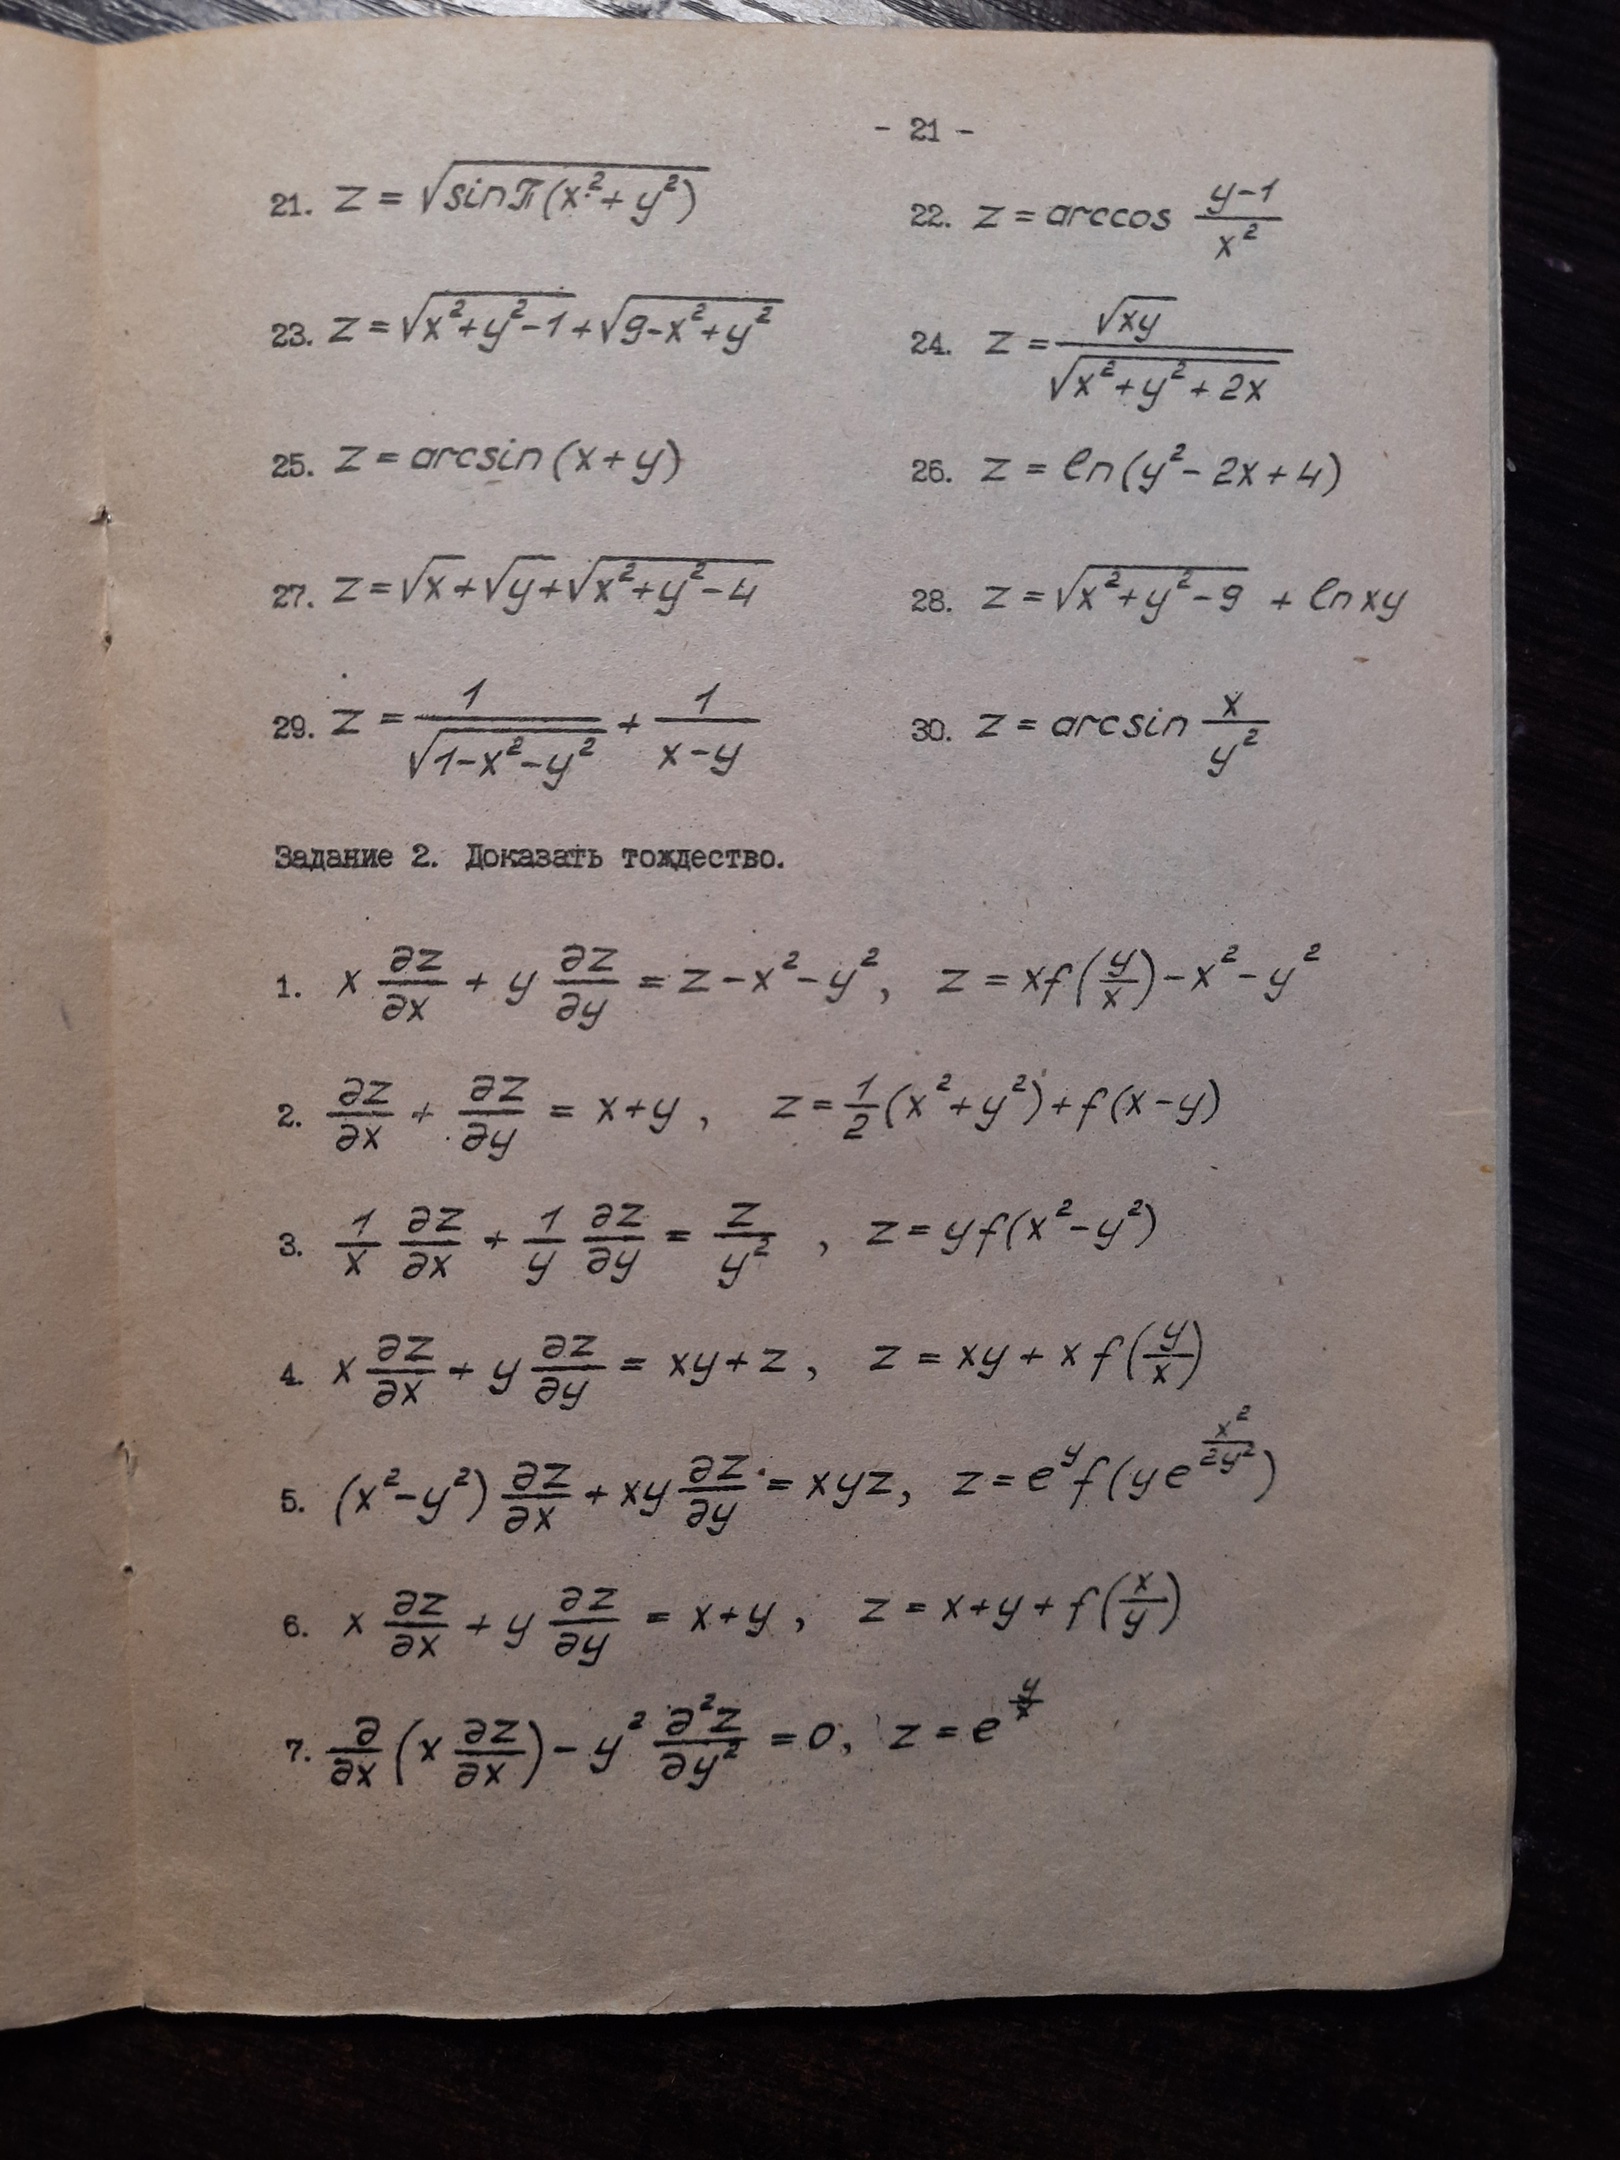 - 21 -
21. z = √(sin π(x² + y²))
22. z = arccos (y-1)/x²
23. z = √(x²+y²-1) + √(9-x²+y²)
24. z = √(xy) / √(x²+y²+2x)
25. z = arcsin (x+y)
26. z = ln(y² - 2x + 4)
27. z = √x + √y + √(x²+y²-4)
28. z = √(x²+y²-9) + ln xy
29. z = 1/√(1-x²-y²) + 1/(x-y)
30. z = arcsin x/y²
Задание 2. Доказать тождество.
1. x ∂z/∂x + y ∂z/∂y = z - x² - y², z = xf(y/x) - x² - y²
2. ∂z/∂x + ∂z/∂y = x+y, z = 1/2(x²+y²) + f(x-y)
3. 1/x ∂z/∂x + 1/y ∂z/∂y = z/y², z = yf(x²-y²)
4. x ∂z/∂x + y ∂z/∂y = xy+z, z = xy + xf(y/x)
5. (x²-y²) ∂z/∂x + xy ∂z/∂y = xyz, z = e^y f(ye^(x²/2y²))
6. x ∂z/∂x + y ∂z/∂y = x+y, z = x+y+f(x/y)
7. ∂/∂x (x ∂z/∂x) - y² ∂²z/∂y² = 0, z = e^(y/x)